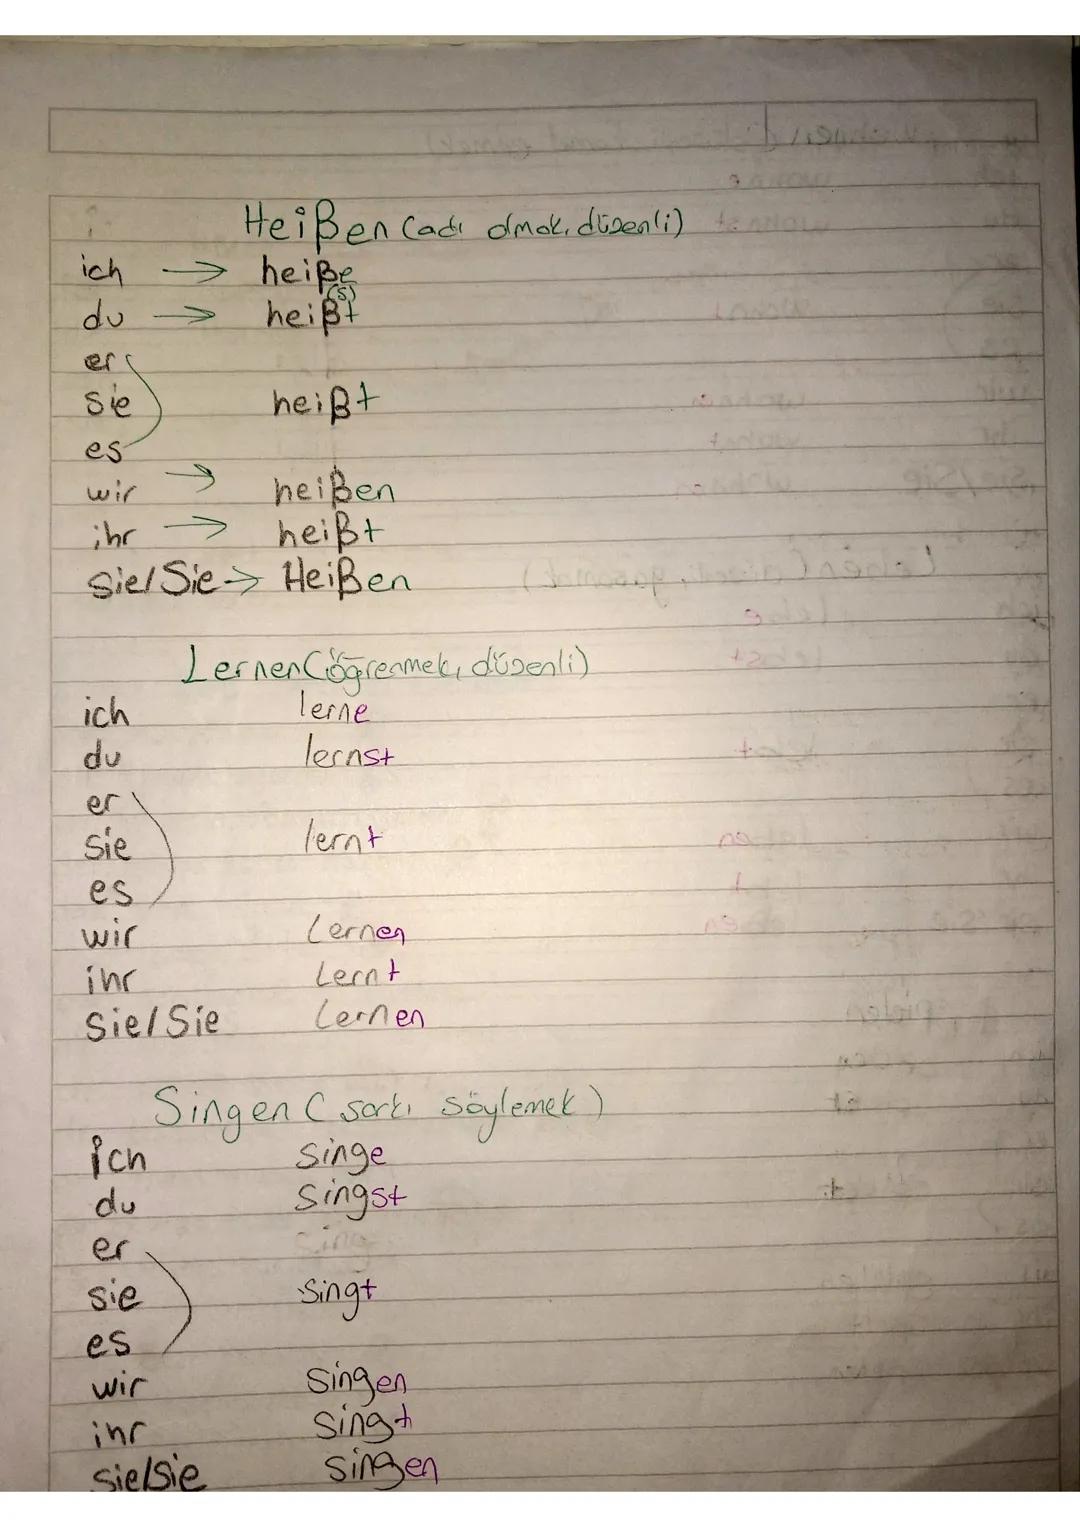 Heißen (adı olmak, düzenli)
ich → heiße
du → heiß(s)t
er
sie heißt
es
wir → heißen
ihr → heißt
sie/Sie → Heißen
Lernen (öğrenmek, düzenli)
ich lerne
du lernst
er
sie lernt
es
wir Lernen
ihr Lernt
sie/Sie Lernen
Singen (sarkı söylemek)
ich singe
du singst
er
sie singt
es
wir singen
ihr singt
sie/sie singen